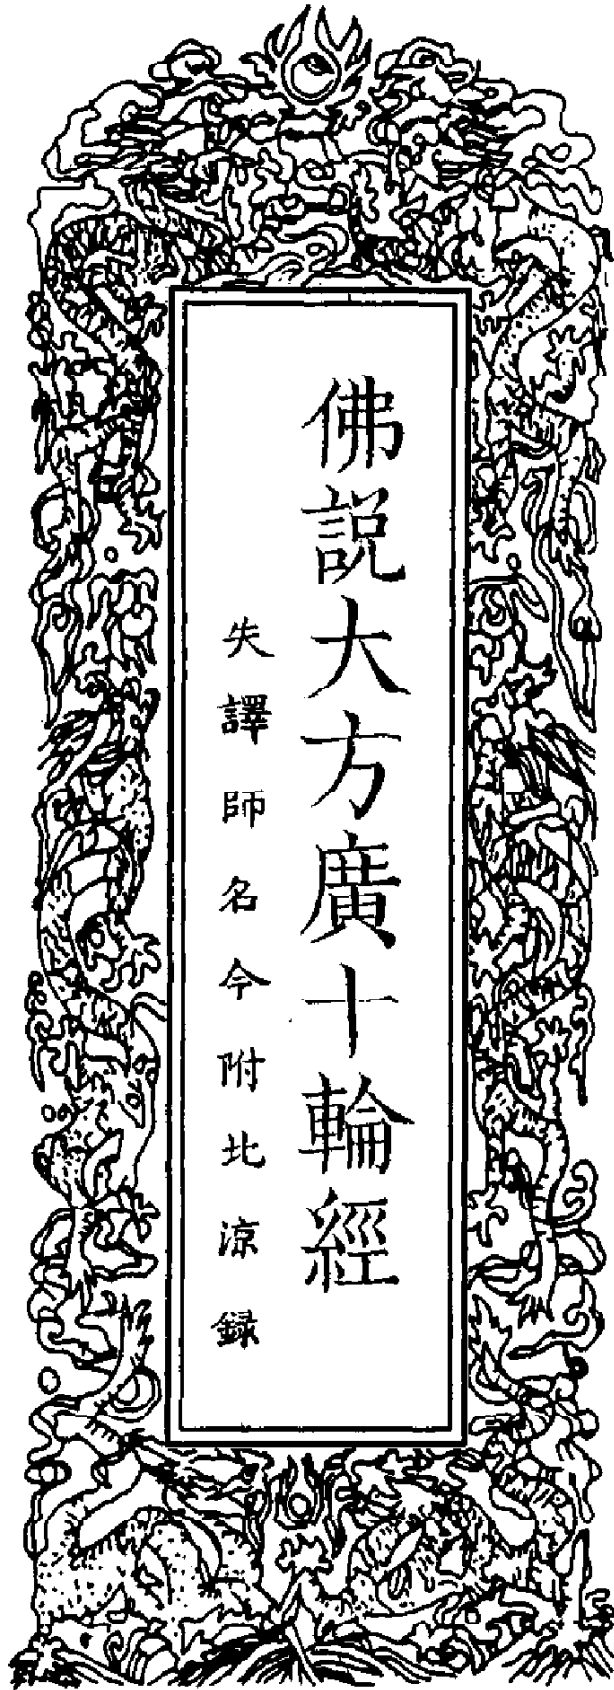 佛說大方廣十輪經
失譯師名今附北涼錄